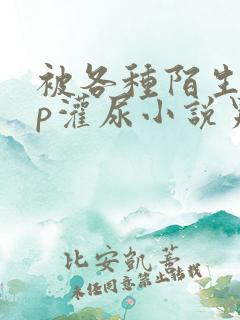 被各種陌生
p灌尿小說
比安凱蒂
未經同意禁止轉載